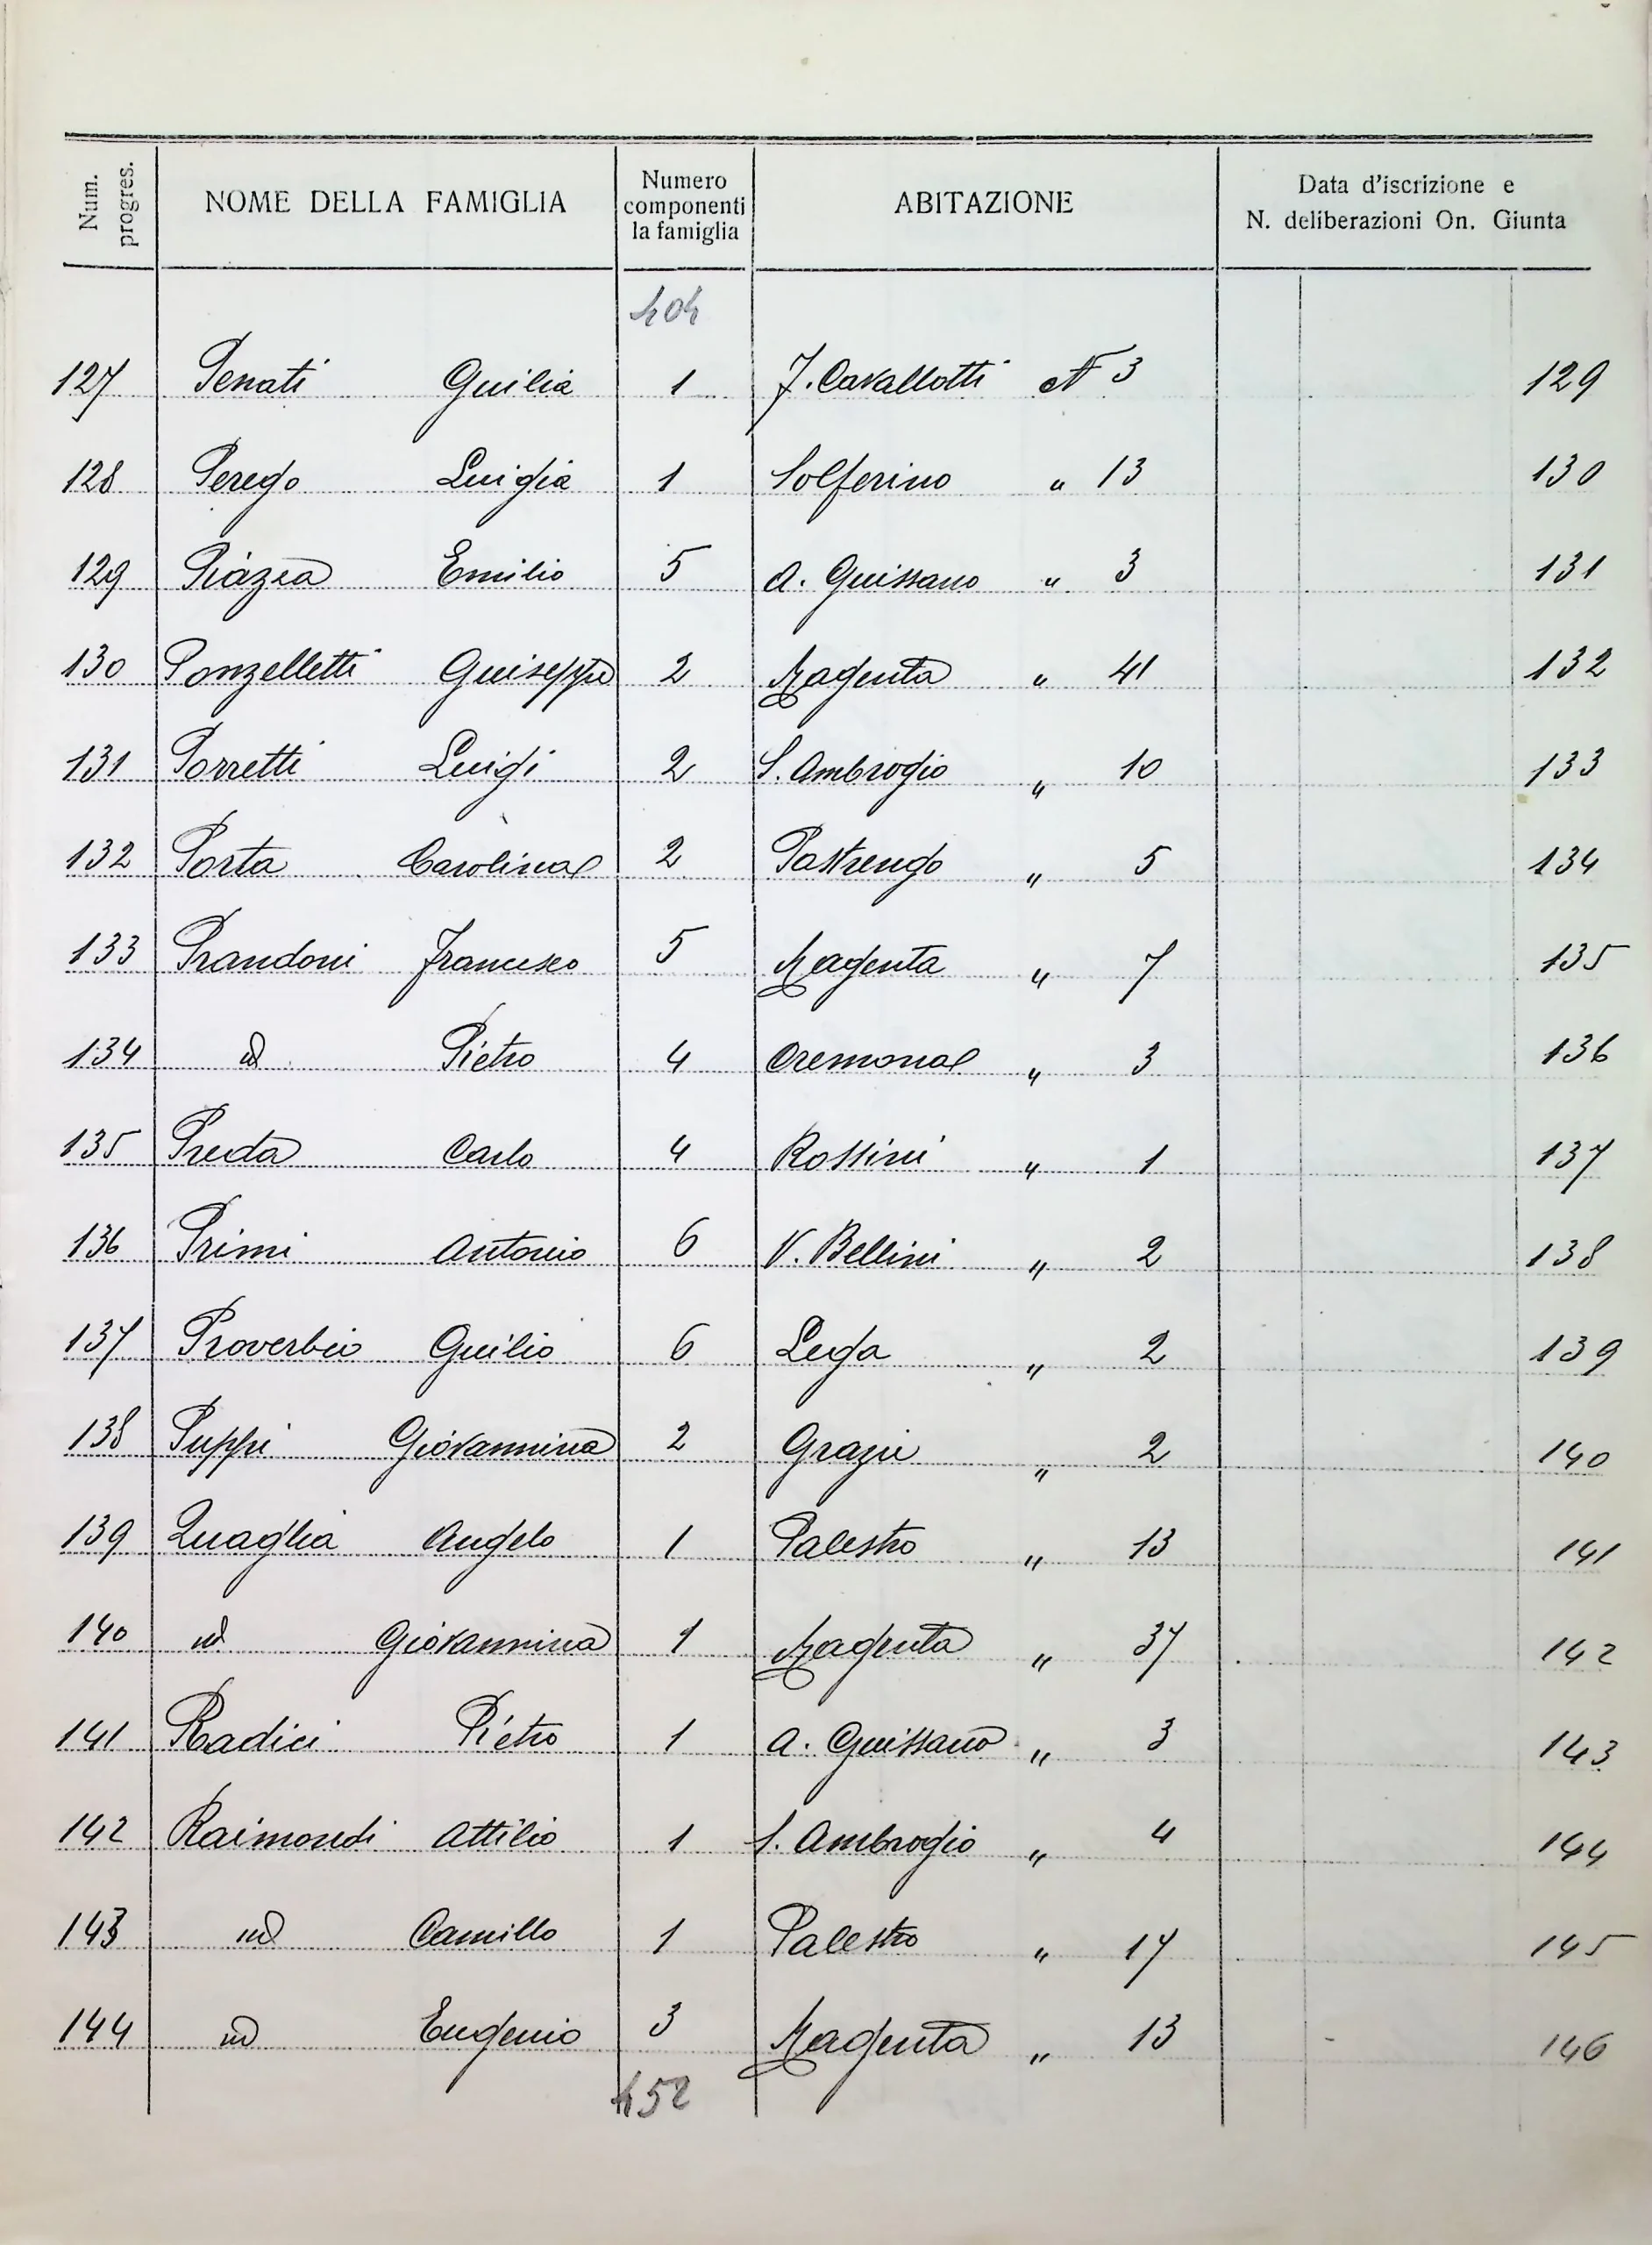 Num. progres.
NOME DELLA FAMIGLIA
Numero componenti la famiglia
ABITAZIONE
Data d'iscrizione e N. deliberazioni On. Giunta
404
127 Penati Giulia 1 F. Cavallotti N 3 129
128 Perego Luigia 1 Solferino " 13 130
129 Piazza Emilio 5 A. Guissano " 3 131
130 Ponzelletti Giuseppe 2 Magenta " 41 132
131 Porretti Luigi 2 S. Ambrogio " 10 133
132 Porta Carolina 2 Pastrengo " 5 134
133 Prandoni Francesco 5 Magenta " 7 135
134 id Pietro 4 Cremona " 3 136
135 Preda Carlo 4 Rossini " 1 137
136 Primi Antonio 6 V. Bellini " 2 138
137 Proverbio Giulio 6 Lega " 2 139
138 Puppi Giovannina 2 Grazie " 2 140
139 Quaglia Angelo 1 Palestro " 13 141
140 id Giovannina 1 Magenta " 37 142
141 Radici Pietro 1 A. Guissano " 3 143
142 Raimondi Attilio 1 S. Ambrogio " 4 144
143 id Camillo 1 Palestro " 17 145
144 id Eugenio 3 Magenta " 13 146
452